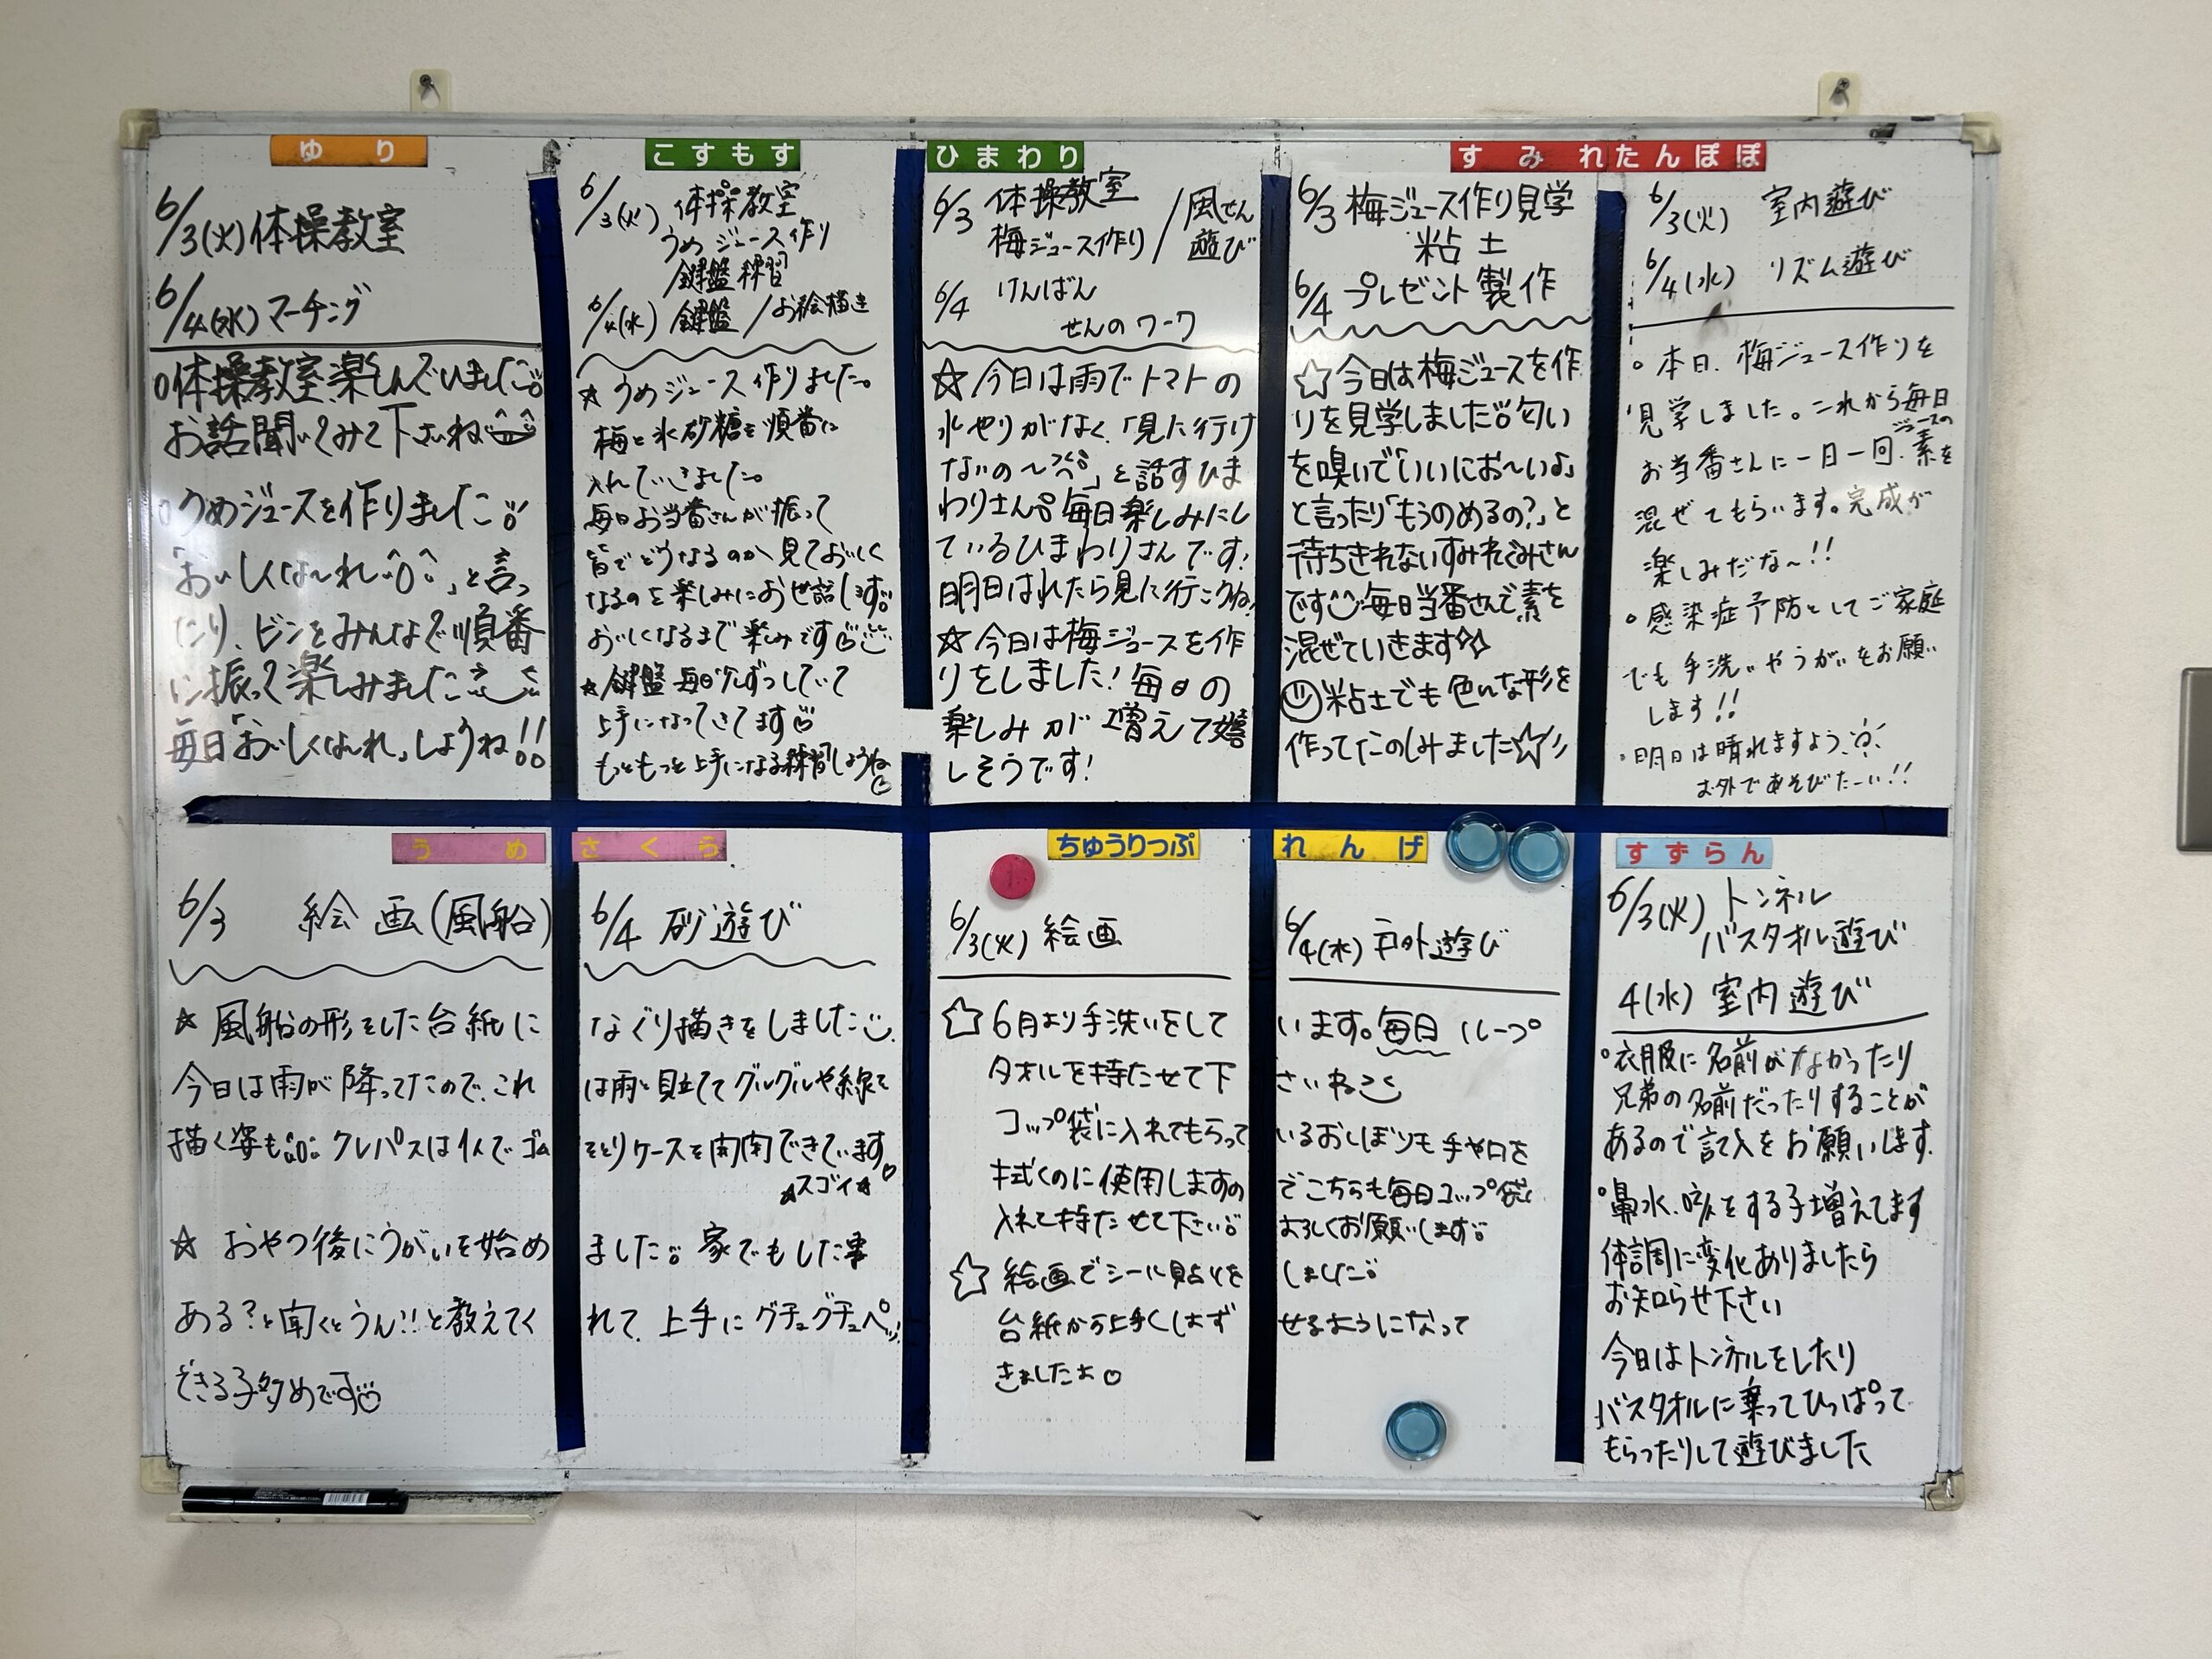 ゆり
6/3(火)体操教室
6/4(水)マーチング
体操教室、楽しんでいました
お話聞いてみて下さいね
うめジュースを作りました
「おいしくな〜れ」と言っ
たり、ビンをみんなで順番
に振って楽しみました
毎日「おいしくな〜れ」しようね!!
こすもす
6/3(火) 体操教室
うめジュース作り
鍵盤練習
6/4(水) 鍵盤/お絵描き
☆うめジュース作りました。
梅と氷砂糖を順番に
入れていきました。
毎日お当番さんが振って
皆でどうなるのか見ておいしく
なるのを楽しみにお世話します
おいしくなるまで楽しみです
☆鍵盤毎日少しずつしていて
上手になってきてます
もっともっと上手になる様練習しようね
ひまわり
6/3 体操教室
梅ジュース作り/風せん
遊び
6/4 けんばん
せんのワーク
☆今日は雨でトマトの
水やりがなく、「見に行け
ないの〜」と話すひま
わりさん 毎日楽しみにし
ているひまわりさんです!
明日はれたら見に行こうね!
☆今日は梅ジュースを作
りをしました! 毎日の
楽しみが増えて嬉
しそうです!
すみれ
6/3 梅ジュース作り見学
粘土
6/4 プレゼント製作
☆今日は梅ジュースを作
りを見学しました 匂い
を嗅いで「いいにお〜いよ」
と言ったり「もうのめるの?」と
待ちきれないすみれぐみさん
です 毎日当番さんで素を
混ぜていきます
粘土でも色んな形を
作ってたのしみました☆
たんぽぽ
6/3(火) 室内遊び
6/4(水) リズム遊び
。本日、梅ジュース作りを
見学しました。これから毎日
お当番さんに一日一回、ジュースの素を
混ぜてもらいます。完成が
楽しみだな〜!!
。感染症予防としてご家庭
でも手洗いやうがいをお願い
します!!
・明日は晴れますよう
お外であそびたーい!!
うめ さくら
6/3 絵画(風船) 6/4 砂遊び
☆風船の形をした台紙に なぐり描きをしました
今日は雨が降ってたので、これ は雨と見立ててグルグルや線を
描く姿も クレパスは1人でゴム そとりケースを開閉できています
☆スゴイ☆
☆おやつ後にうがいを始め ました 家でもした事
ある?と聞くとうん!!と教えてく れて、上手にグチュグチュペッ!
できる子多めです
ちゅうりっぷ れんげ
6/3(火) 絵画 6/4(水) 戸外遊び
☆6月より手洗いをして います。毎日ループ
タオルを持たせて下 さいね
コップ袋に入れてもらって いるおしぼりも手や口を
拭くのに使用しますの でこちらも毎日コップ袋に
入れて持たせて下さい よろしくお願いします
☆絵画でシール貼りを しました
台紙から上手くはず せるようになって
きましたよ♡
すずらん
6/3(火) トンネル
バスタオル遊び
4(水) 室内遊び
。衣服に名前がなかったり
兄弟の名前だったりすることが
あるので記入をお願いします。
。鼻水、咳をする子増えてます
体調に変化ありましたら
お知らせ下さい
今日はトンネルをしたり
バスタオルに乗ってひっぱって
もらったりして遊びました